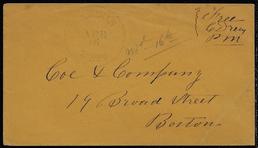 Free
P.M
Wed 16th
Coe & Company
19 Broad Street
Boston